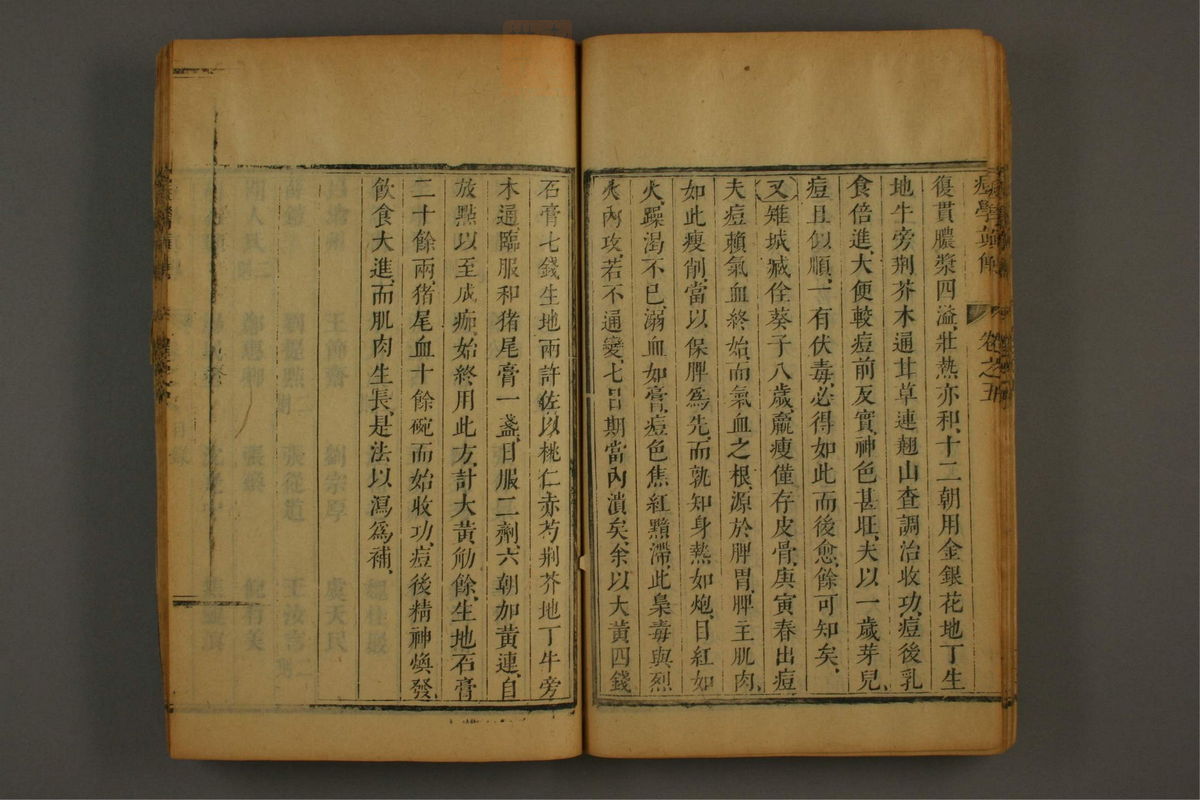 痘學真傳 卷之五
復貫膿漿四溢、壯熱亦和、十二朝用金銀花地丁生
地牛旁荆芥木通甘草連翹山查調治收功、痘後乳
食倍進、大便較痘前反實、神色甚旺、夫以一歲芽兒、
痘且似順、一有伏毒、必得如此而後愈、餘可知矣、
又雉城臧佺葵子八歲、羸瘦僅存皮骨、庚寅春出痘
夫痘賴氣血終始、而氣血之根、源於脾胃、脾主肌肉、
如此瘦削、當以保脾爲先、而孰知身熱如炮、目紅如
火、躁渴不已、溺血如膏、痘色焦紅黯滯、此梟毒與烈
火內攻、若不通變、七日期當內潰矣、余以大黃四錢
石膏七錢生地兩許、佐以桃仁赤芍荆芥地丁牛旁
木通、臨服和猪尾膏一盞、日服二劑、六朝加黃連、自
放點以至成痂、始終用此方、計大黃觔餘、生地石膏
二十餘兩、猪尾血十餘碗、而始收功、痘後精神煥發、
飲食大進、而肌肉生長、是法以瀉爲補、